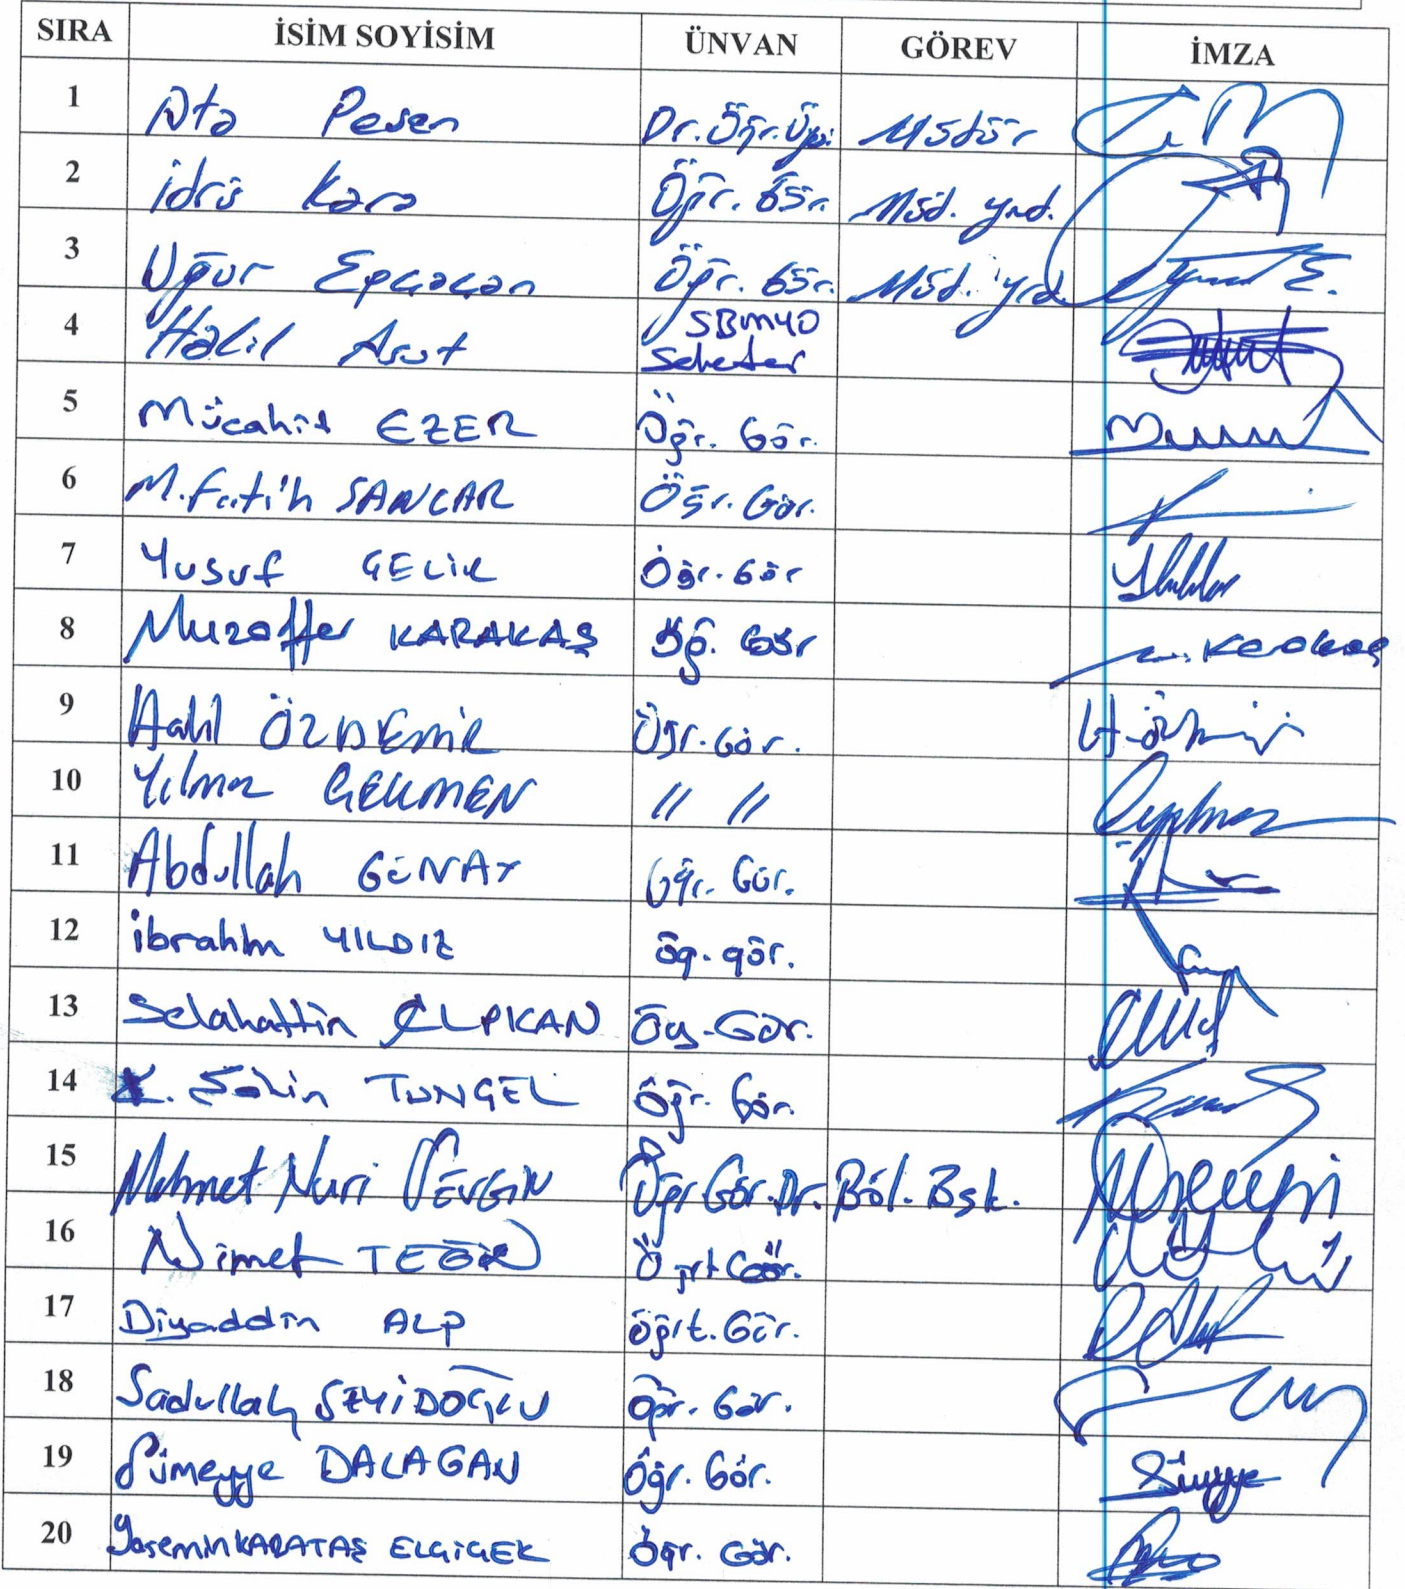 SIRA İSİM SOYİSİM ÜNVAN GÖREV İMZA
1 Ata Pesen Dr. Öğr. Üyi. Müdür
2 İdris Kara Öğr. Gör. Müd. Yrd.
3 Uğur Epçaçan Öğr. Gör. Müd. Yrd.
4 Halil Asut SBMYO Sekreter
5 Mücahit EZER Öğr. Gör.
6 M. Fatih SANCAR Öğr. Gör.
7 Yusuf ÇELİK Öğr. Gör
8 Muzaffer KARAKAŞ Öğ. Gör M. Karakaş
9 Halil ÖZDEMİR Öğr. Gör.
10 Yılmaz GEKMEN // //
11 Abdullah GÜNAY Öğr. Gör.
12 İbrahim YILDIZ Öğ. gör.
13 Selahattin ÇLPKAN Öğ. Gör.
14 Şahin TUNGEL Öğr. Gör.
15 Mehmet Nuri SEVGİN Öğr Gör. Dr. Böl. Bşk.
16 Nimet TEĞİN Öğrt Gör.
17 Diyaddin ALP Öğrt. Gör.
18 Sadullah SEYİDOĞLU Öğr. Gör.
19 Sümeyye DALAGAN Öğr. Gör.
20 Yasemin KARATAŞ ELGİGEK Öğr. Gör.